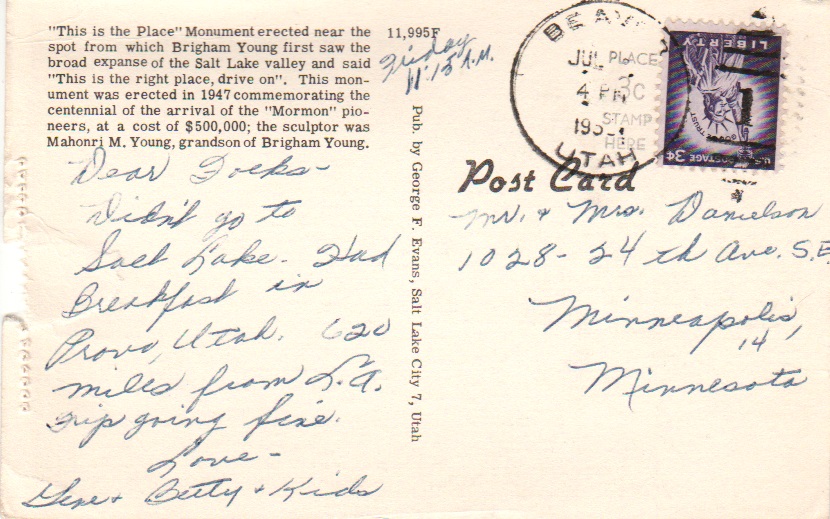 "This is the Place" Monument erected near the
spot from which Brigham Young first saw the
broad expanse of the Salt Lake valley and said
"This is the right place, drive on". This mon-
ument was erected in 1947 commemorating the
centennial of the arrival of the "Mormon" pio-
neers, at a cost of $500,000; the sculptor was
Mahonri M. Young, grandson of Brigham Young.
11,995F
Friday
11:15 A.M.
Dear Folks-
Didn't go to
Salt Lake. Had
Breakfast in
Provo, Utah. 620
miles from L.A.
Trip going fine.
Love-
Gene + Betty + Kids
Pub. by George F. Evans, Salt Lake City 7, Utah
BEAVER
JUL
4 PM
UTAH
PLACE
3C
STAMP
HERE
LIBERTY
TRUST
U.S. POSTAGE 3¢
Post Card
Mr. + Mrs. Danielson
1028-24th Ave. S.E.
Minneapolis,
14
Minnesota